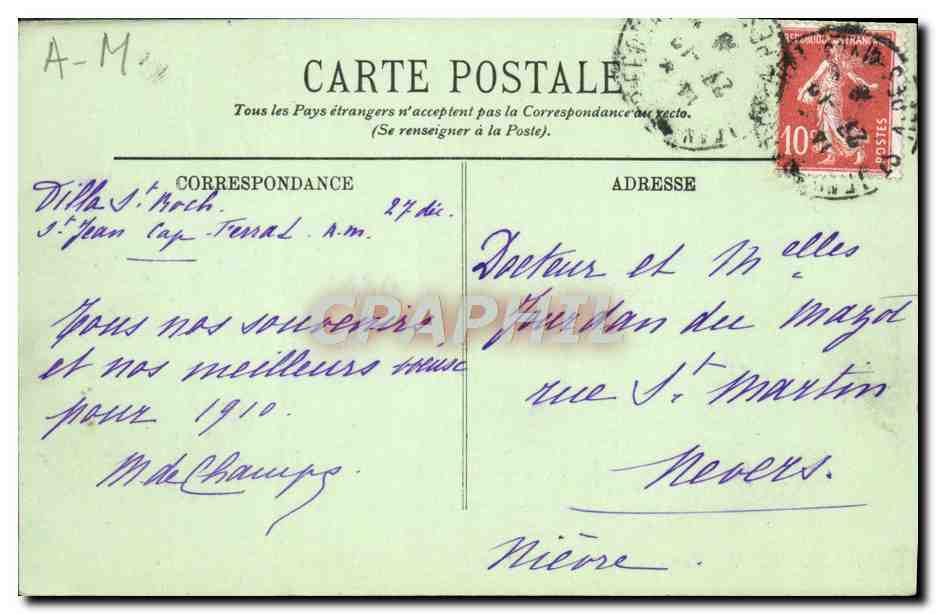 A-M
CARTE POSTALE
Tous les Pays étrangers n'acceptent pas la Correspondance au recto.
(Se renseigner à la Poste).
10c
POSTES
CORRESPONDANCE
Villa St Roch. 27 déc.
St Jean Cap Ferrat A.M.
Tous nos souvenirs
et nos meilleurs voeux
pour 1910.
M. de Champs.
ADRESSE
Docteur et Melles
Jourdan du Mazot
rue St Martin
Nevers.
Nièvre.
CPAPHIL